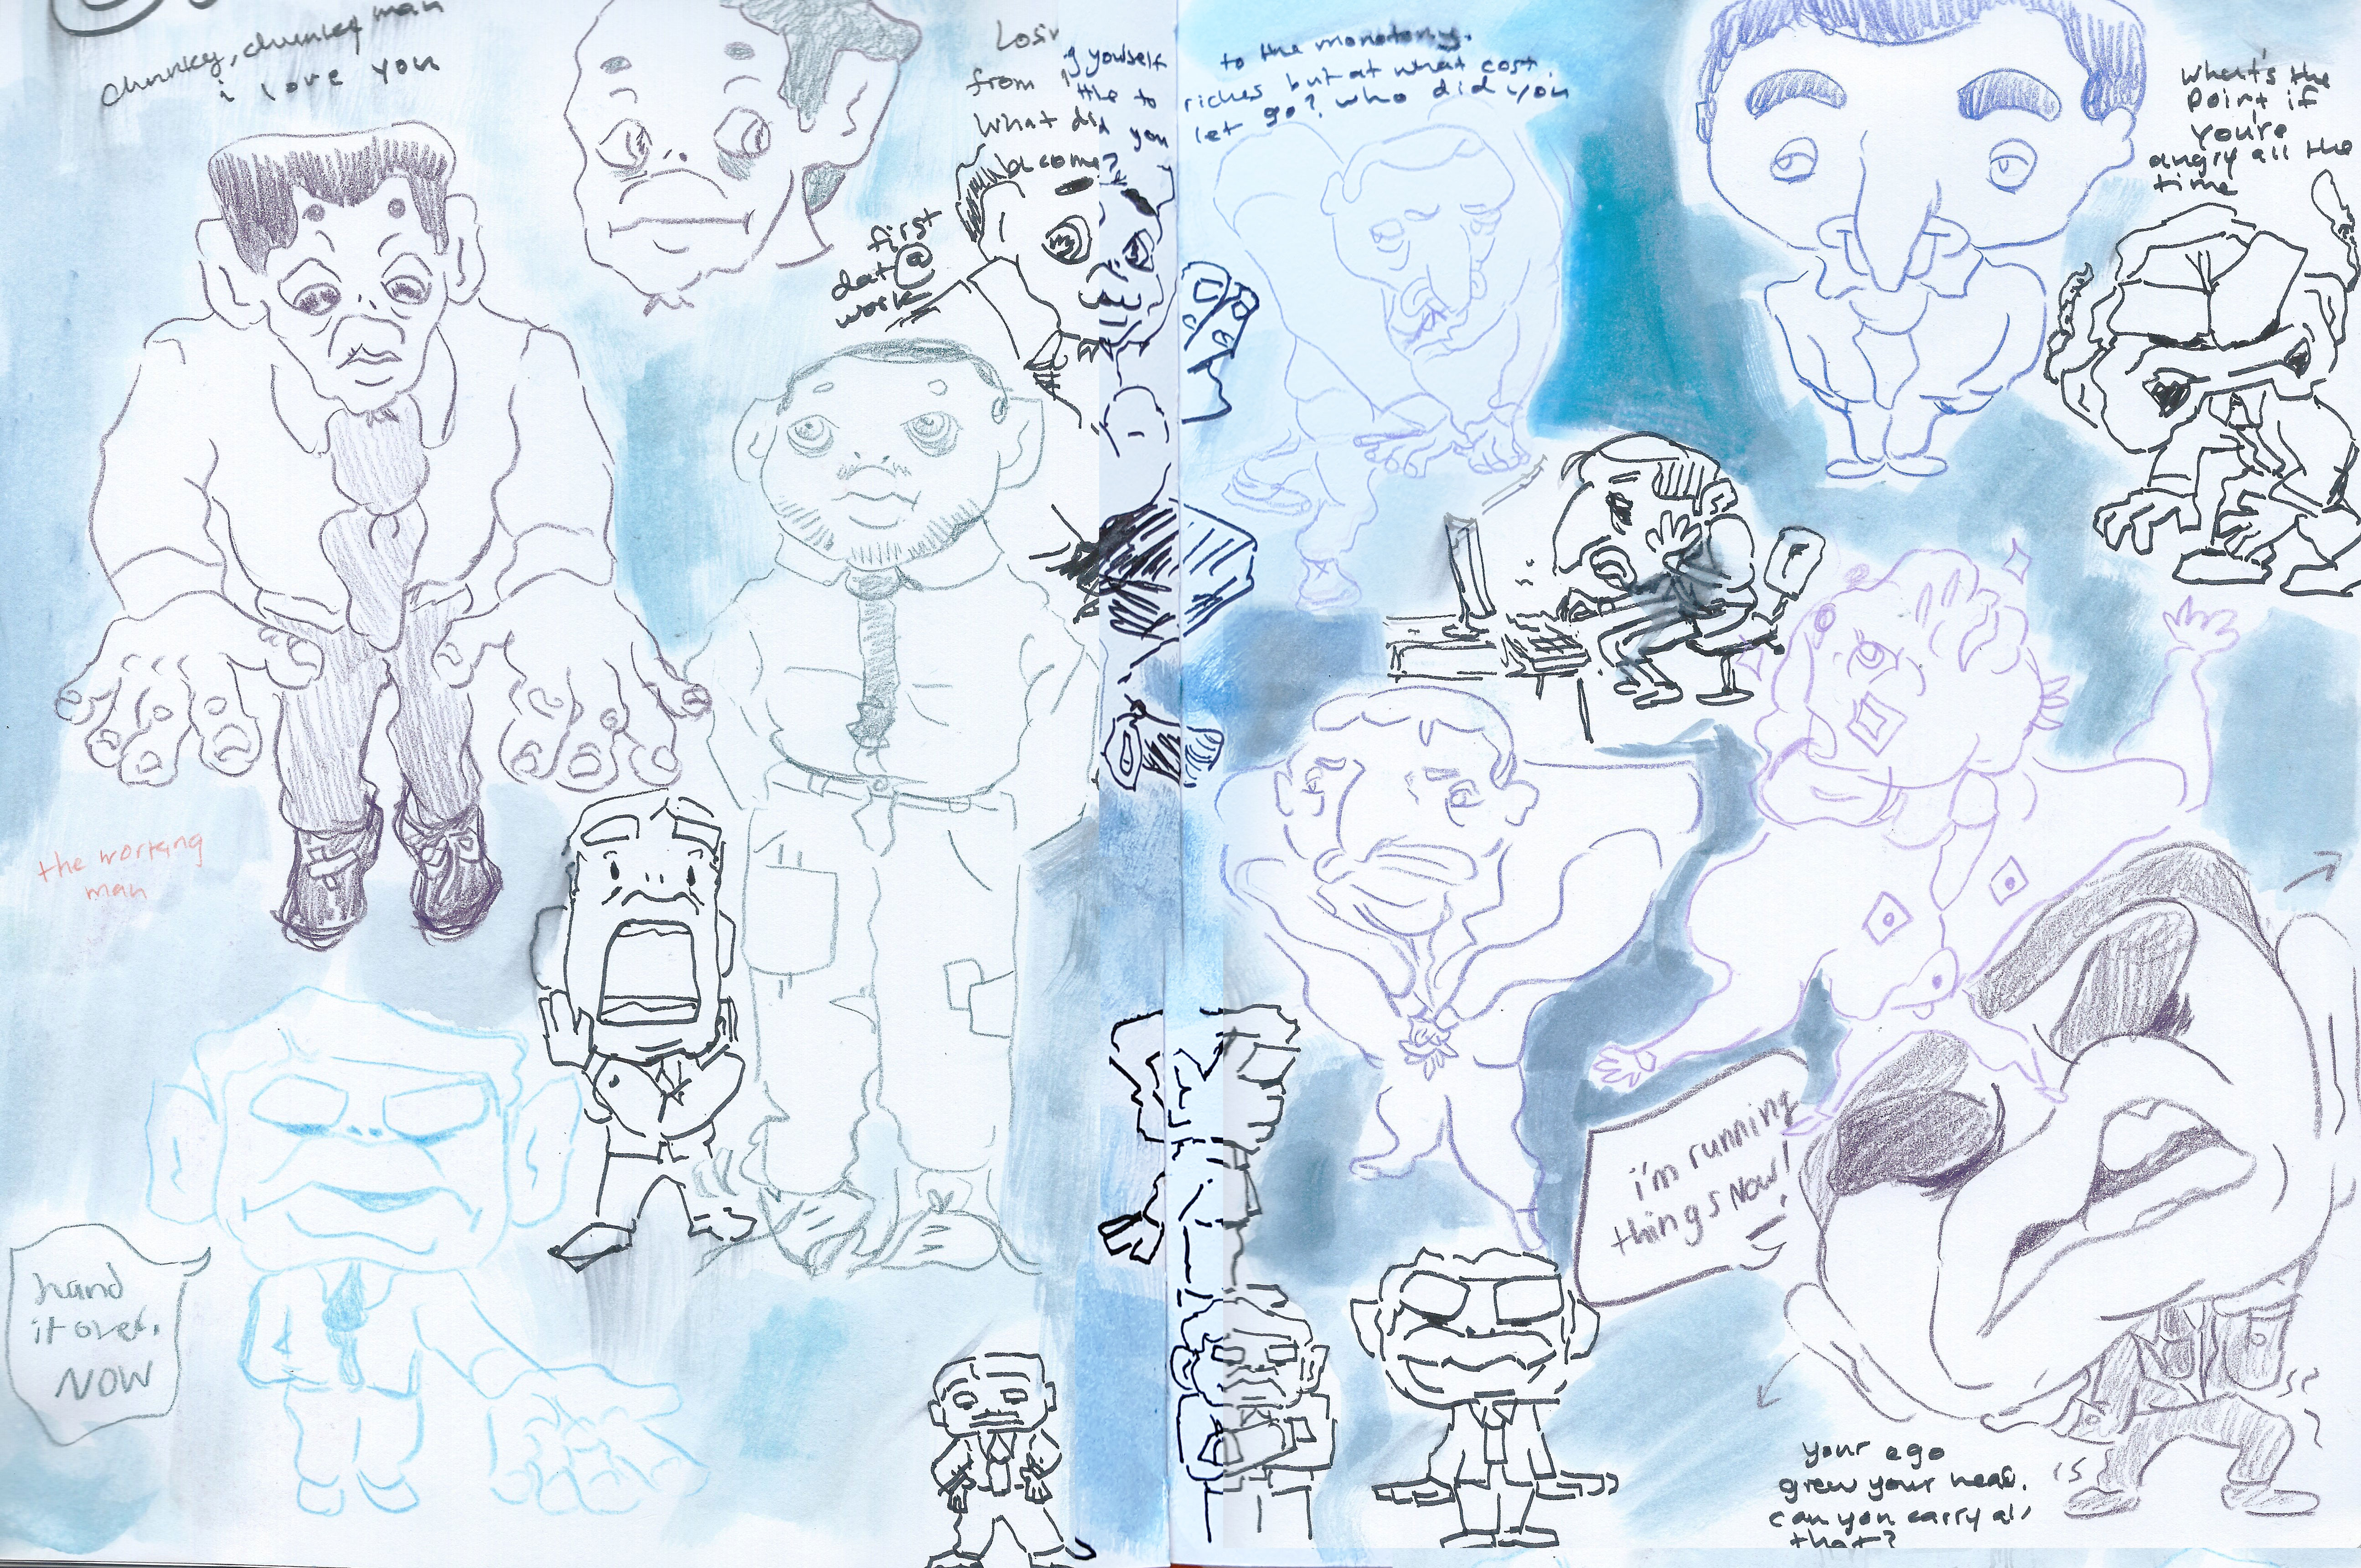 chunky, chunky man
i love you
Losing yourself to the monotony.
from little to riches but at what cost.
What did you let go? who did you
become?
first
dat @
work
What's the
point if
you're
angry all the
time
the working
man
hand
it over.
NOW
i'm running
things NOW!
your ego
grew your head.
can you carry all
that?